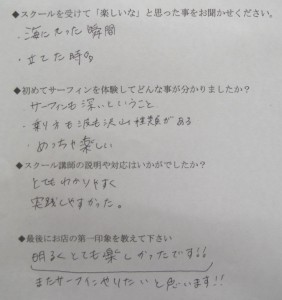 ◆スクールを受けて「楽しいな」と思った事をお聞かせください。
・海に入った瞬間
・立てた時
◆初めてサーフィンを体験してどんな事が分かりましたか?
・サーフィンも深いということ
・乗り方も波も沢山種類がある
・めっちゃ楽しい
◆スクール講師の説明や対応はいかがでしたか?
とてもわかりやすく
実践しやすかった。
◆最後にお店の第一印象を教えて下さい
明るくとても楽しかったです!!
またサーフィンやりたいと思います!!